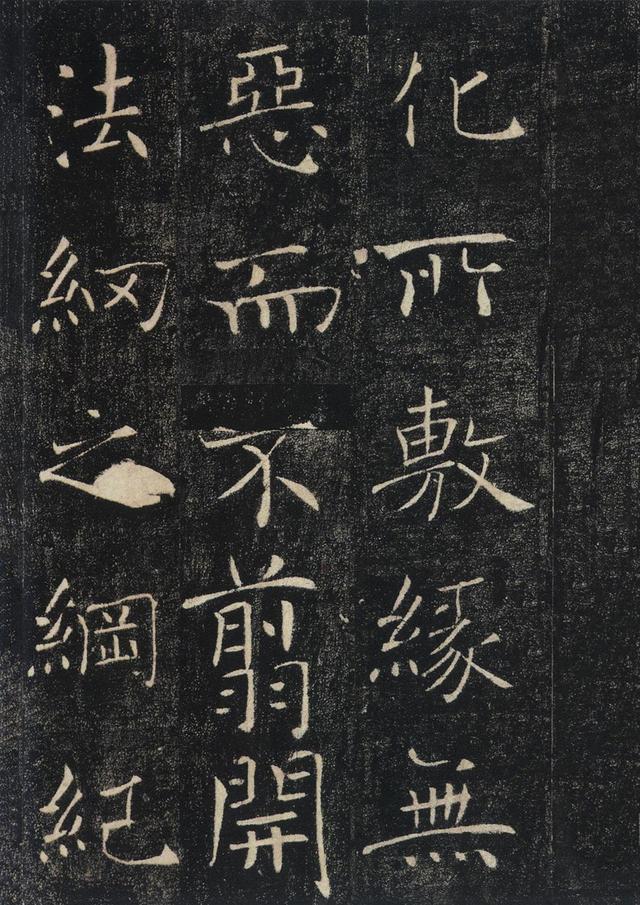 化所敷緣無
惡而不翦開
法網之綱紀